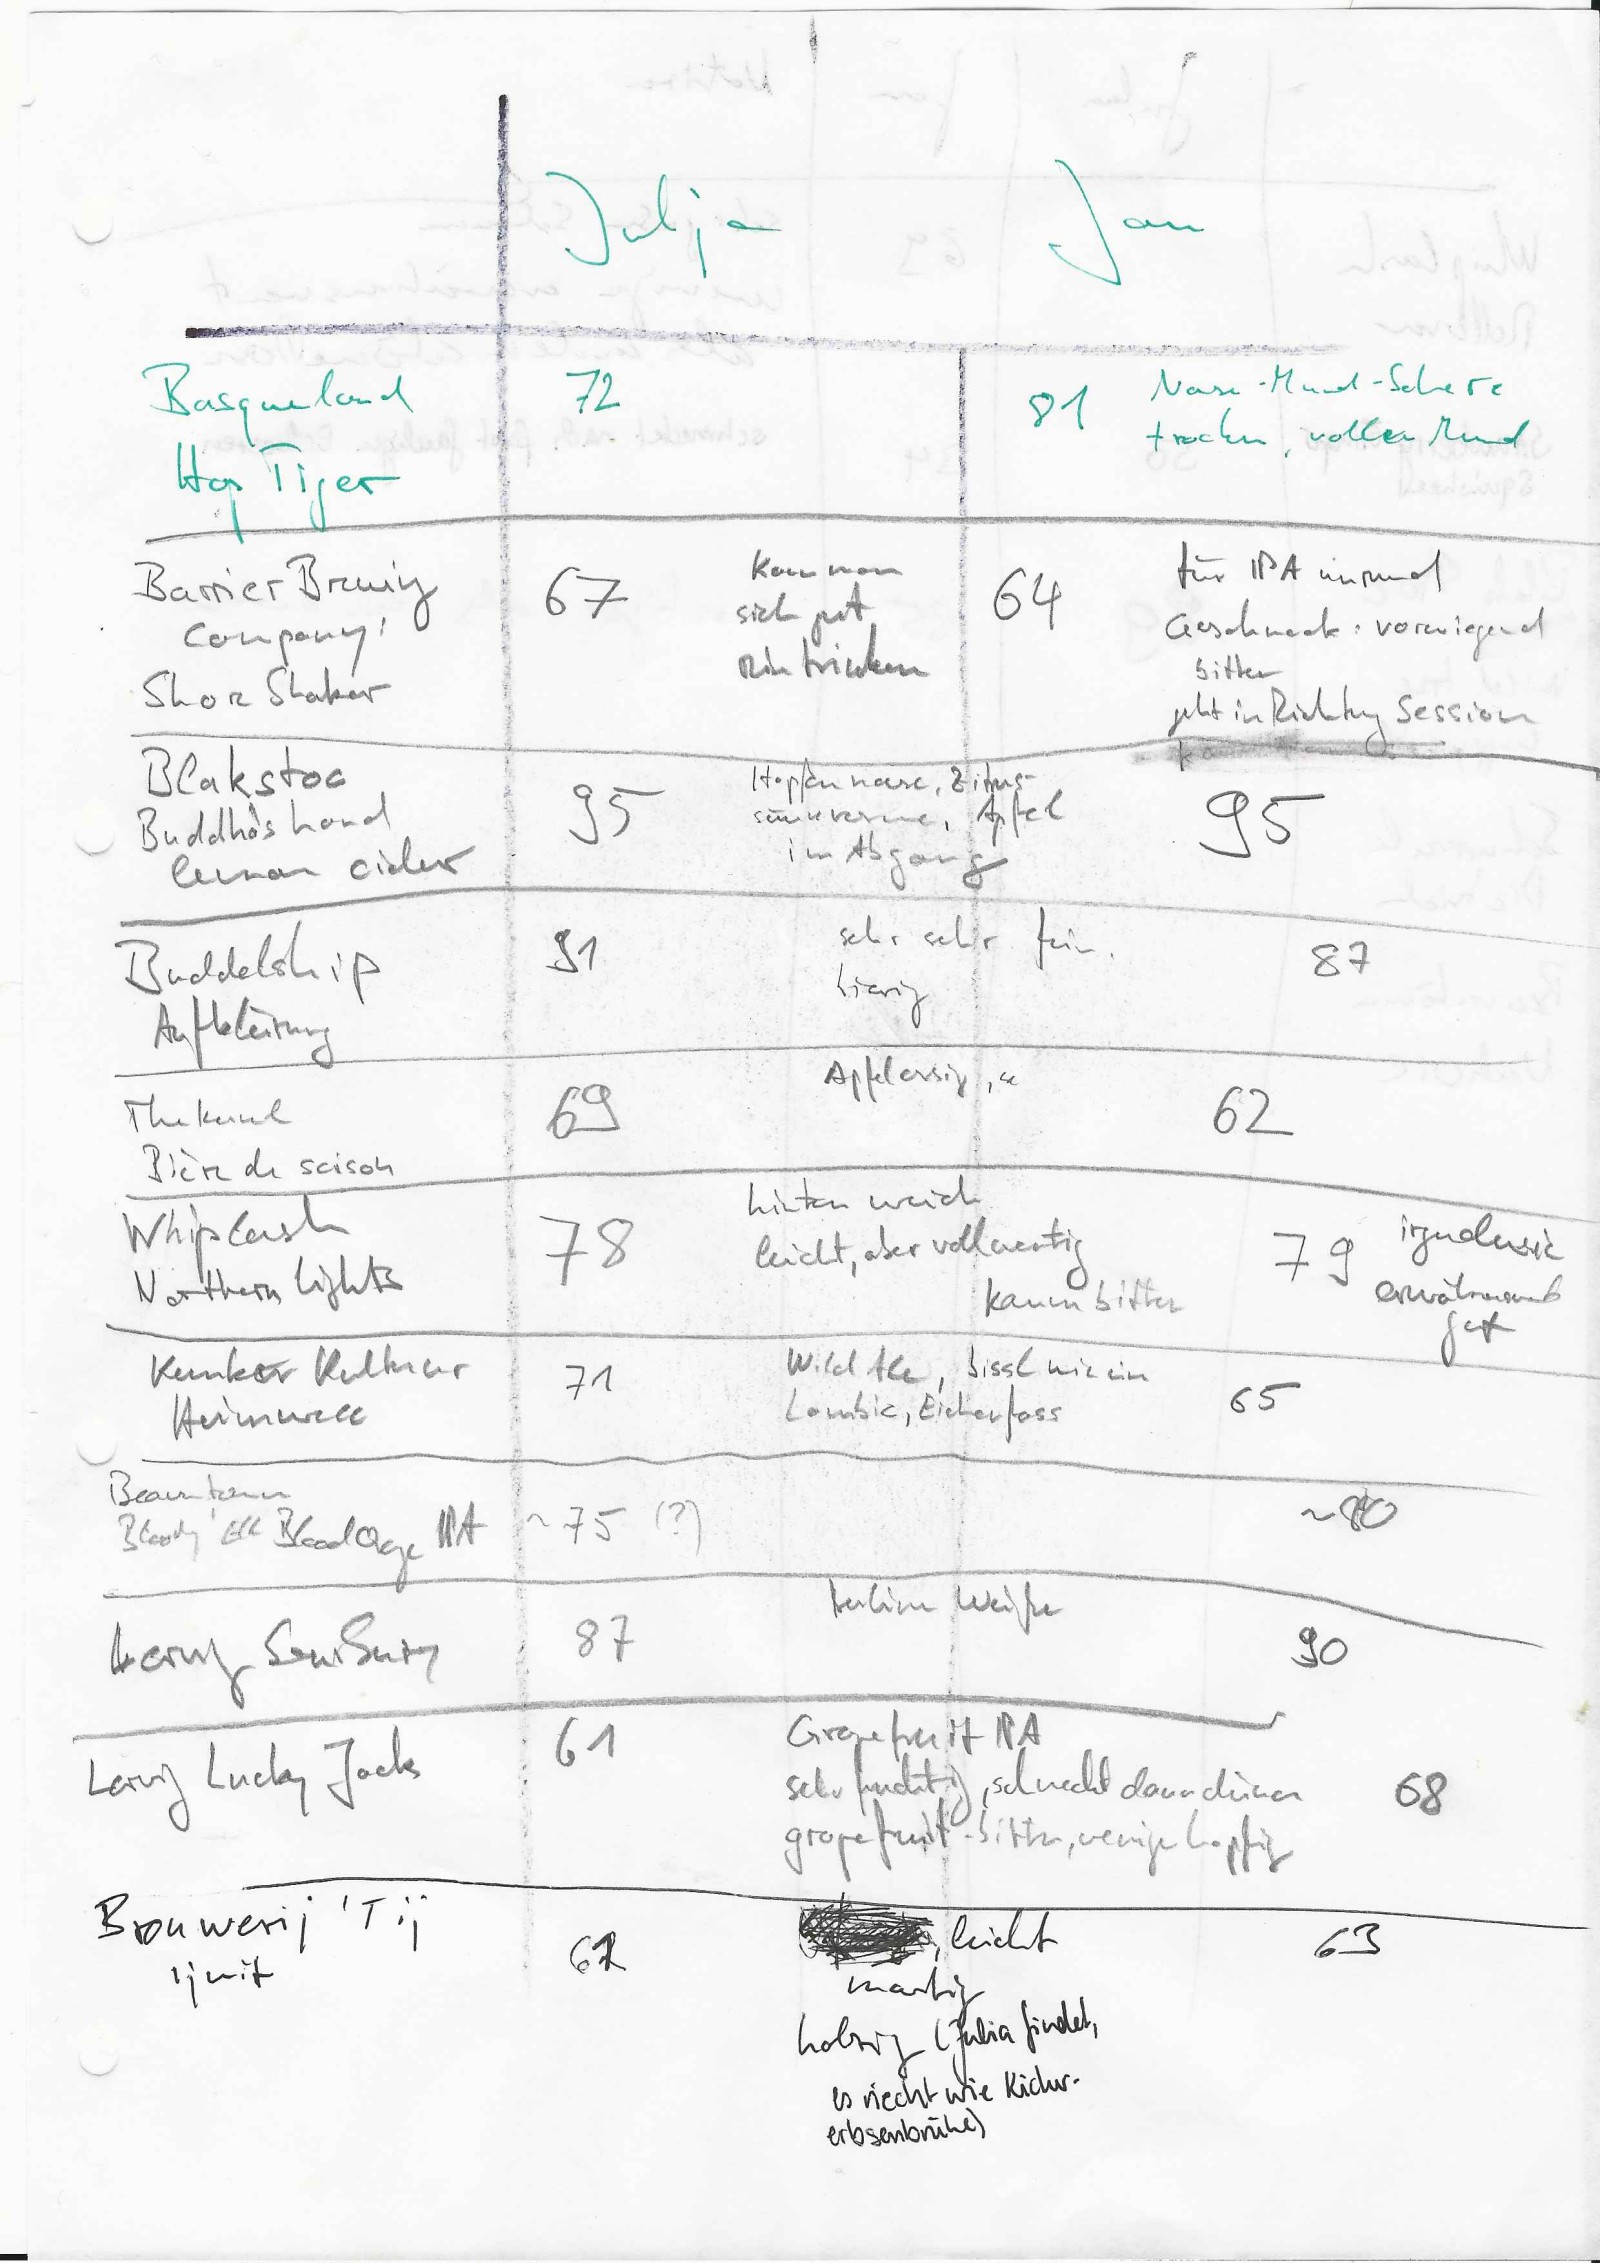 Julja Jan
Basqueland 72 81 Nase-Mund-Schere
Hop Tiger trocken, voller Mund
Barrier Brewing 67 Kann man 64 für IPA unrund
Company: sich gut Geschmack: vorwiegend
Shore Shaker reintrinken bitter
geht in Richtung Session
Blakstoc 95 Hopfennase, Zitrus- 95
Buddha's hand säureverne, Apfel
lemon cider im Abgang
Buddelship 91 sehr sehr fein. 87
Aufklärung bierig
The Kernel 69 Apfelessig, 62
Bière de saison
Whiplash 78 hinten weich 79 irgendwie
Northern Lights leicht, aber vollwertig erwähnenswert
kaum bitter gut
Kemker Kultuur 71 Wild Ale, bissl wie ein 65
Lambic, Eichenfass
Beavertown
Bloody 'Ell Blood Orange IPA ~75 (?) ~80
Lervig Sour Suzy 87 Berliner Weiße 90
Lervig Lucky Jack 61 Grapefruit IPA 68
sehr fruchtig, schmeckt dann dünner
grapefruit-bitter, weniger hopfig
Brouwerij 'T ij 62 , leicht 63
ijwit
holzig (Julia findet,
es riecht wie Kicher-
erbsenbrühe)